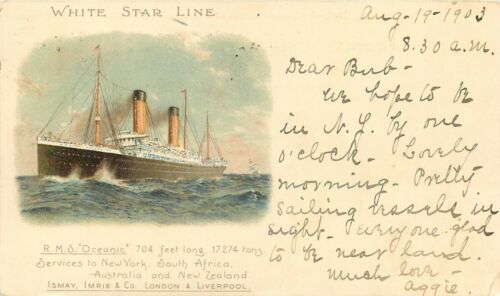 WHITE STAR LINE
Aug-19-1903
8.30 a.m.
Dear Bub-
We hope to be
in N.Y. by one
o'clock- Lovely
morning- Pretty
sailing vessels in
sight- everyone glad
to be near land.
Much love-
Aggie.
R.M.S. "Oceanic" 704 feet long. 17.274 tons
Services to New York, South Africa,
Australia and New Zealand.
ISMAY, IMRIE & CO. LONDON & LIVERPOOL.